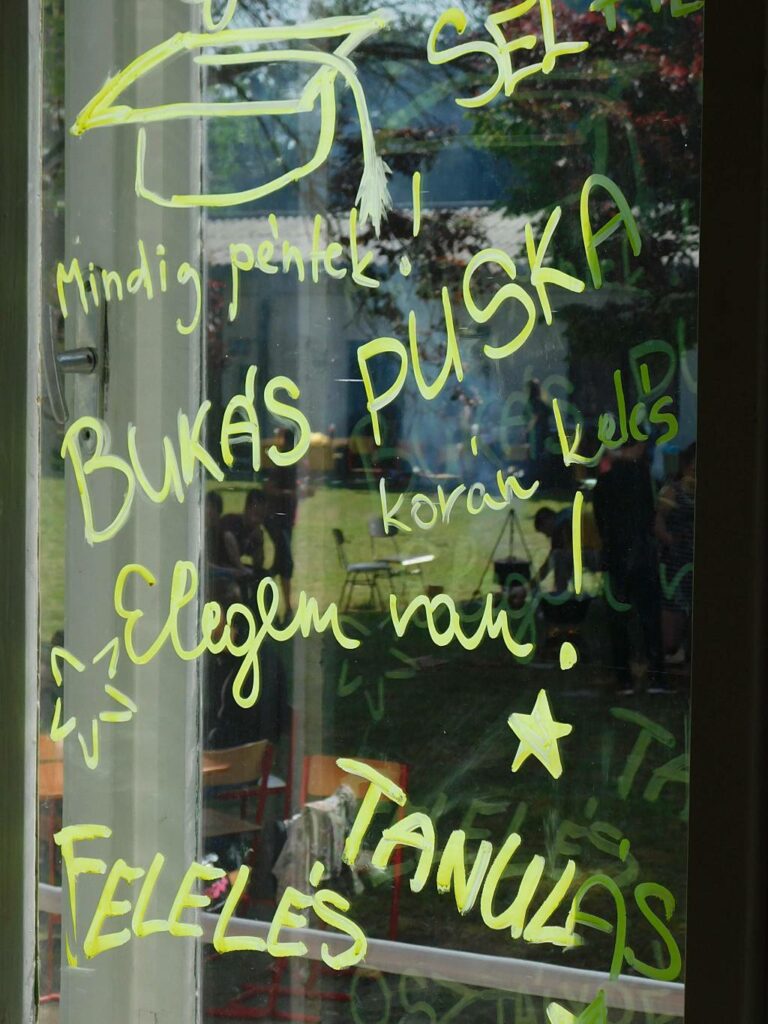 Mindig péntek!
PUSKA
BUKÁS
korán kelés
Elegem van!
TANULÁS
FELELÉS